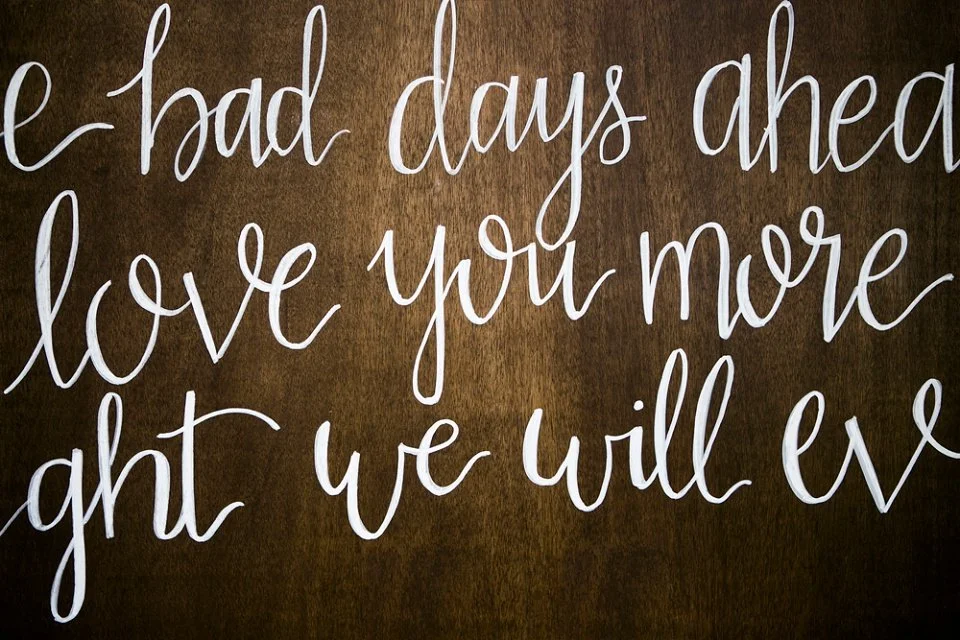 e bad days ahea
love you more
ght we will ev